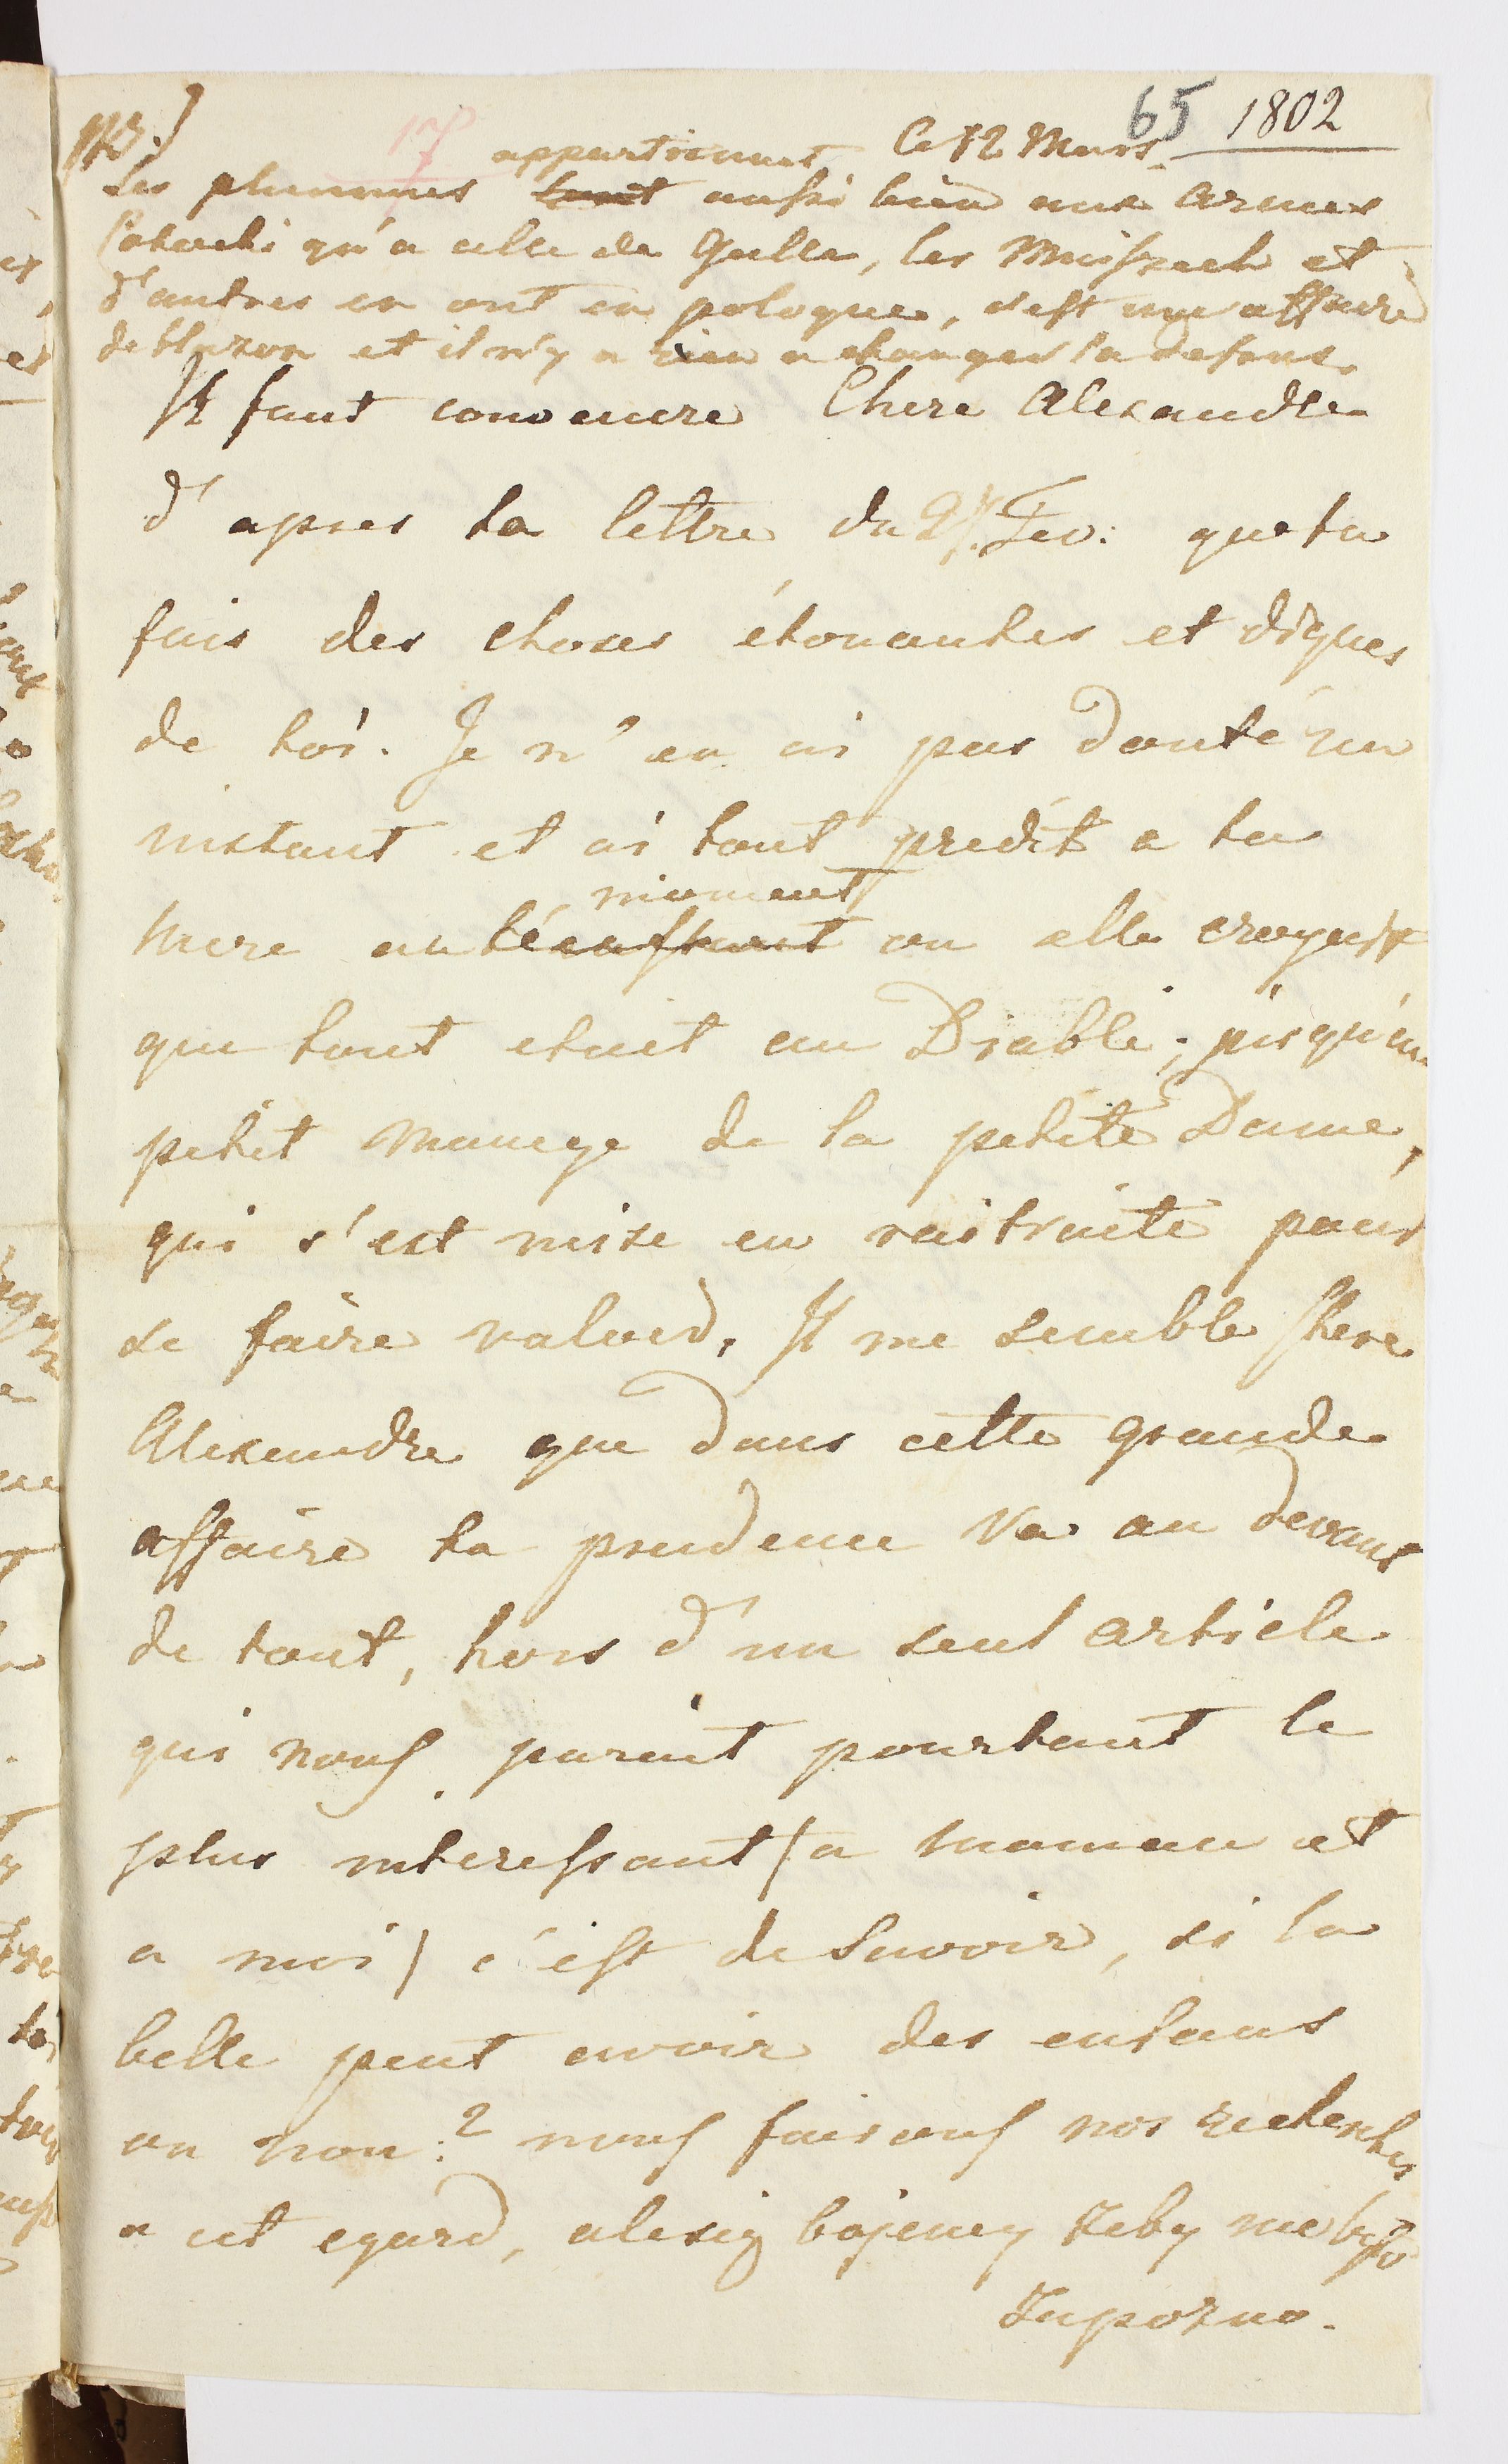 65 1802
17
Ce 12 Mars
appartienent
Les plummes sont aussi bien aux armes
Potocki qu'a celle de Galle, les Mniszech et
d'autres en ont en pologne, c'est une affaire
de blazon et il n'y a rien a changer la desous.
Il faut convenire Chere Alexandre
d'apres ta lettre du 27. Fev: que tu
fais des choses étonantes et dignes
de toi. Je n'en ai pas douté un
instant et ai tout predit a ta
moment
Mere au où elle croyait
que tout etait au Diable; jusqu'au
petit manege de la petite Dame,
qui s'est mise en raitraite pour
se faire valoir. Il me semble Chere
Alexandre que dans cette grande
affaire ta prudence va au devant
de tout, hors d'un seul article
qui nous parait pourtant le
plus interessant / a maman et
a moi / c'est de Savoir, si la
belle peut avoir des enfans
ou non:? nous faisons nos recherches
a cet egard, alesię bojemy żeby nie było
Zapozno.